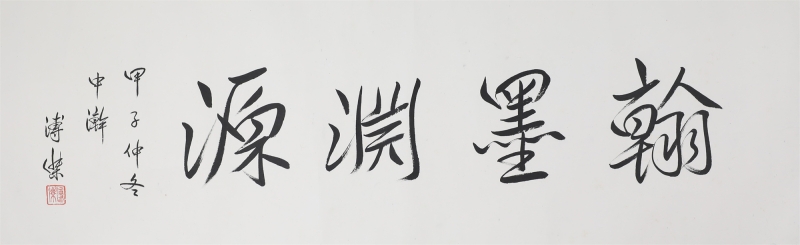 翰墨淵源
甲子仲冬
中澣
溥傑